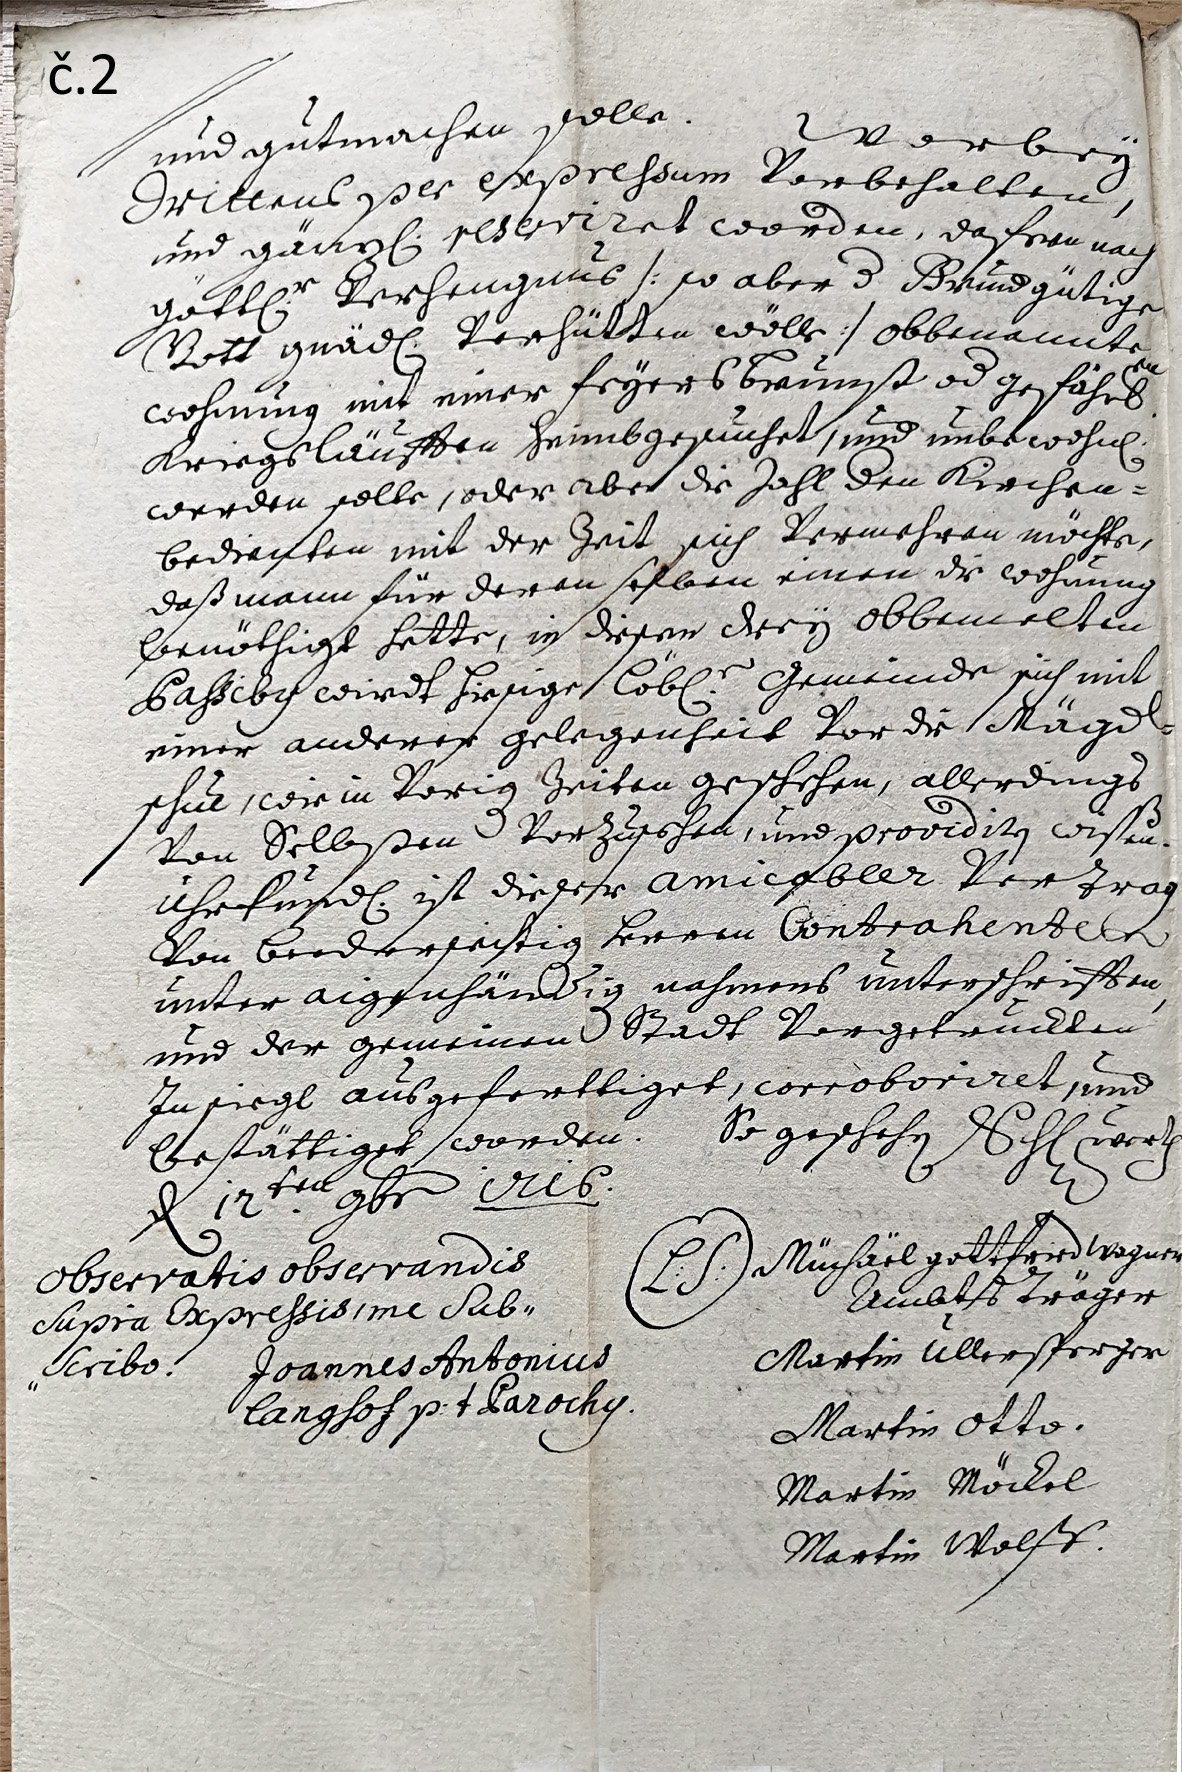 č.2
und gutmachen solle. Worbey
Drittens per expressum Vorbehalten,
und gäntzl: reserviret worden, dafern nach
göttl:r Verhengnus /: so aber d Grundgütige
Gott gnädl: Verhütten wölle :/ obbenannte
wohnung mit einer feyersbrunst od gefährl:en
Kriegsläufften heimbgesuchet, und unbewohnl:
werden solle, oder aber die Zahl den Kirchen=
bedienten mit der Zeit sich Vermehren möchte,
daß mann für deren selben einen die wohnung
benöthigt hette, in diesen drey obbemelten
Passiby wirdt hiesige löbl:e Gemeinde sich mit
einer anderer gelegenheit Vor die Mägdl=
schul, wie in Vorig Zeiten geschehen, allerdings
Von Selbsten Vorzusehen, und providiren wissen.
Uhrkundl: ist dieser amicabler Vertrag
Von beederseithig herren Contrahenten
unter aigenhändig nahmens unterschrifften,
und der gemeinen Stadt Vorgetruckten
Insiegl ausgeferttiget, corroboriret, und
bestättiget worden. So geschehen Schl:werth
d 12ten 9br 1716.
Observatis observandis
Supra Expressis, me Sub"
"Scribo. Joannes Antonius
Langhof p: t Parochy.
(L:S:) Michäel gottfried Wagner
Ambts Träger
Martin Ullersperger
Martin Otto.
Martin Möckel
Martin Wolff.